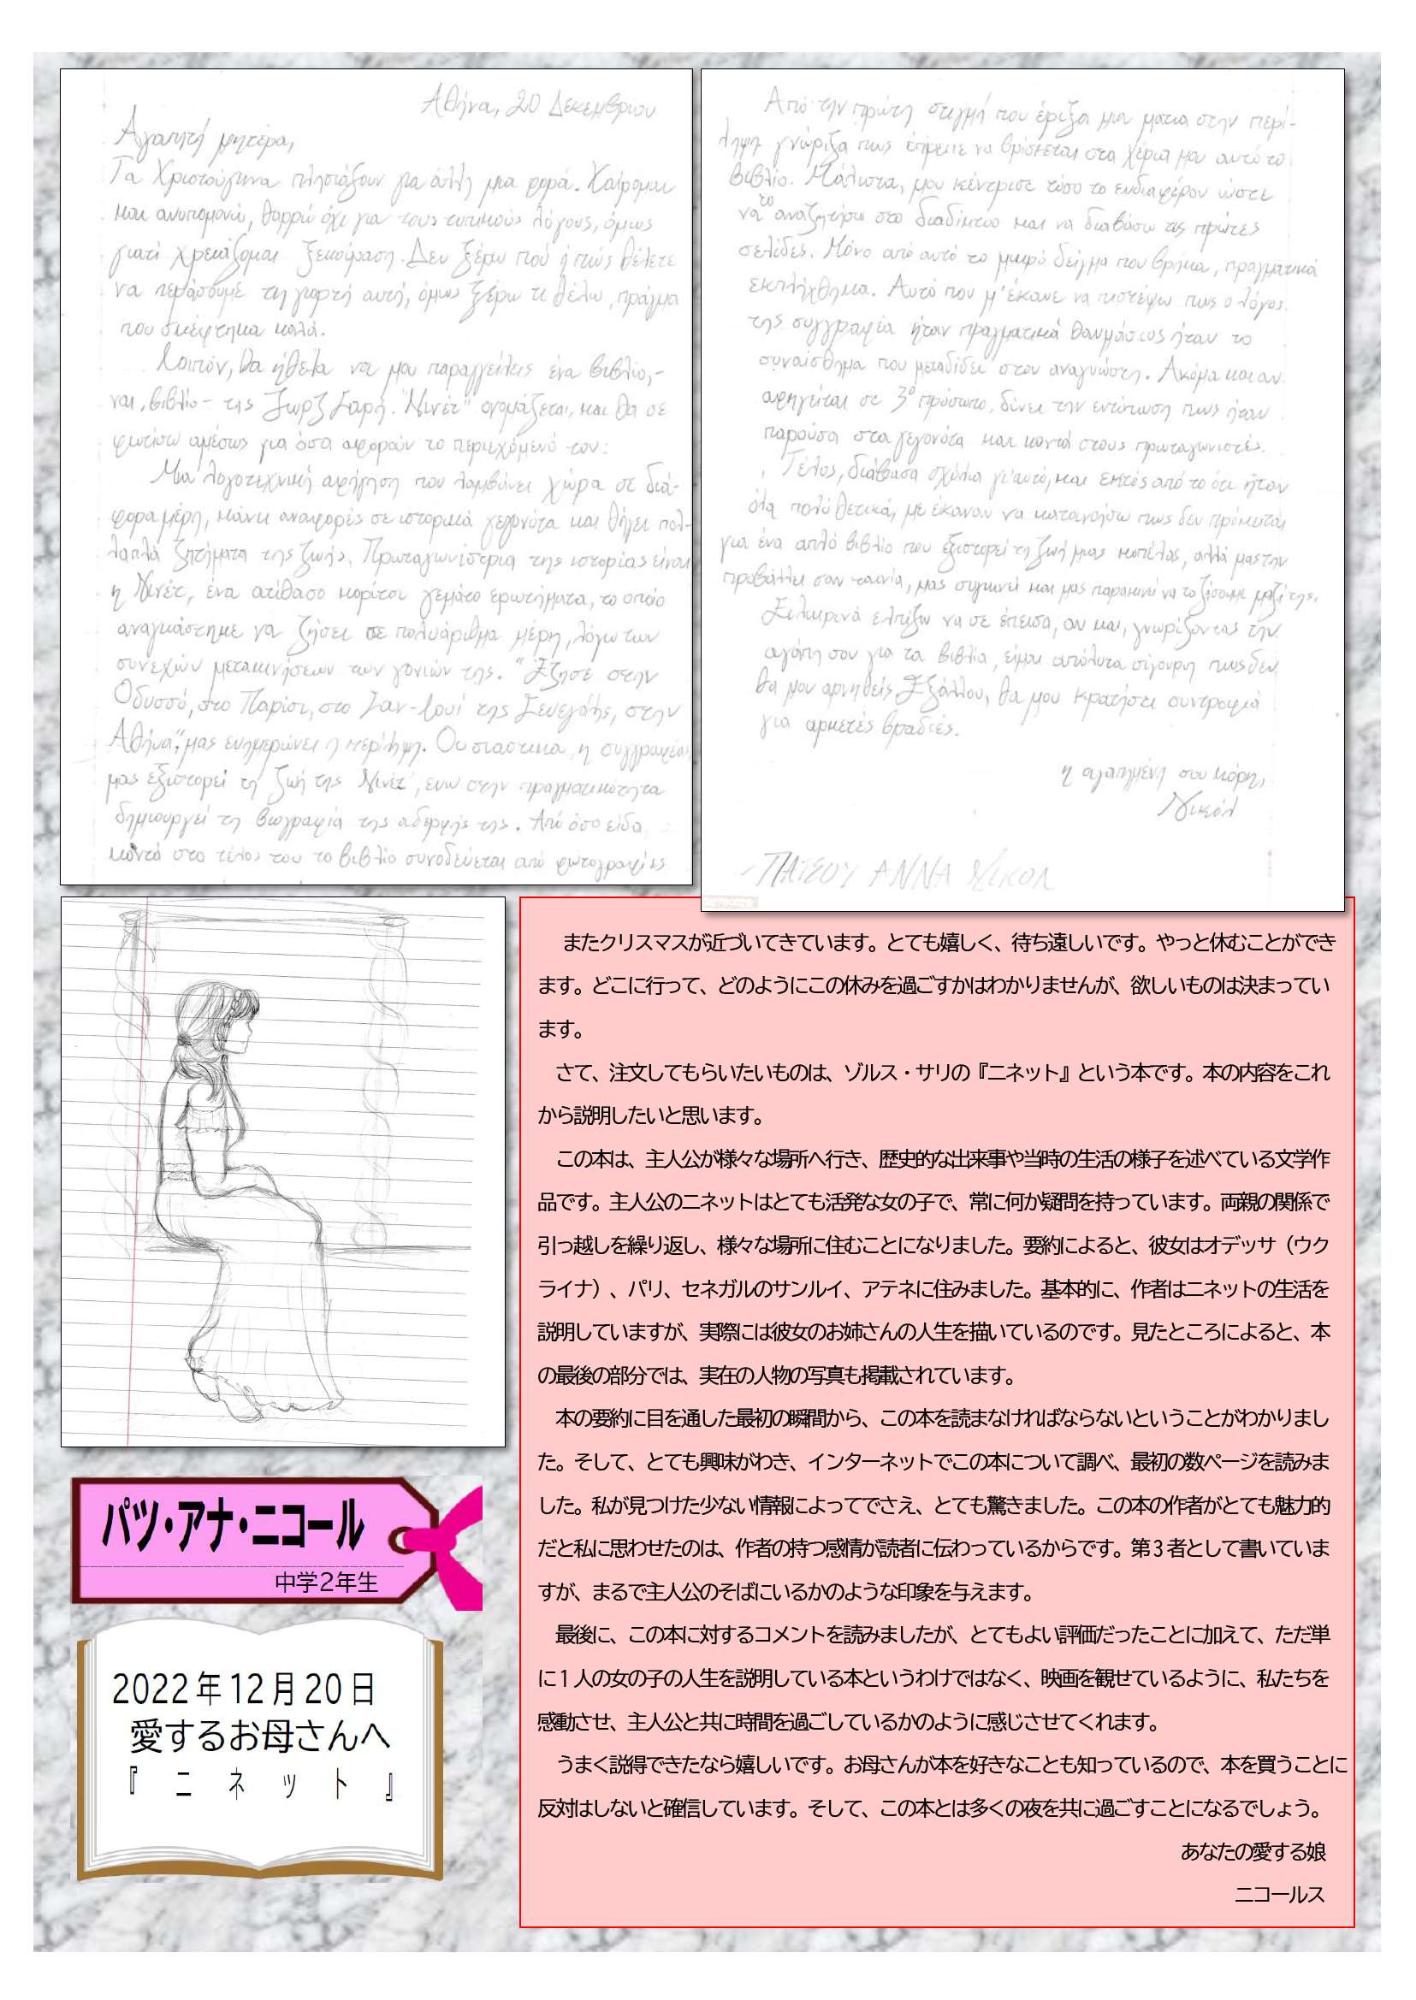 Αθήνα, 20 Δεκεμβρίου
Αγαπητή μητέρα,
Τα Χριστούγεννα πλησιάζουν για άλλη μια φορά. Χαίρομαι
και ανυπομονώ, θαρρώ όχι για τους τυπικούς λόγους, όμως
γιατί χρειάζομαι ξεκούραση. Δεν ξέρω πού ή πώς θέλετε
να περάσουμε τη γιορτή αυτή, όμως ξέρω τι θέλω, πράγμα
που σκέφτηκα καλά.
Λοιπόν, θα ήθελα να μου παραγγείλεις ένα βιβλίο,-
ναι, βιβλίο- της Ζωρζ Σαρή. "Νινέτ" ονομάζεται, και θα σε
φωτίσω αμέσως για όσα αφορούν το περιεχόμενό του:
Μια λογοτεχνική αφήγηση που λαμβάνει χώρα σε διά-
φορα μέρη, κάνει αναφορές σε ιστορικά γεγονότα και θίγει πολ-
λαπλά ζητήματα της ζωής. Πρωταγωνίστρια της ιστορίας είναι
η Νινέτ, ένα ατίθασο κορίτσι γεμάτο ερωτήματα, το οποίο
αναγκάστηκε να ζήσει σε πολυάριθμα μέρη, λόγω των
συνεχών μετακινήσεων των γονιών της. "Έζησε στην
Οδυσσό, στο Παρίσι, στο Σαν-Λουί της Σενεγάλης, στην
Αθήνα", μας ενημερώνει η περίληψη. Ουσιαστικά, η συγγραφέας
μας εξιστορεί τη ζωή της Νινέτ, ενώ στην πραγματικότητα
δημιουργεί τη βιογραφία της αδερφής της. Από όσο είδα,
κοντά στο τέλος του το βιβλίο συνοδεύεται από φωτογραφίες
Από την πρώτη στιγμή που έριξα μια ματιά στην περί-
ληψη γνώριζα πως έπρεπε να βρίσκεται στα χέρια μου αυτό το
βιβλίο. Μάλιστα, μου κέντρισε τόσο το ενδιαφέρον ώστε
να το αναζητήσω στο διαδίκτυο και να διαβάσω τις πρώτες
σελίδες. Μόνο από αυτό το μικρό δείγμα που βρήκα, πραγματικά
εκπλήχθηκα. Αυτό που μ'έκανε να πιστέψω πως ο λόγος
της συγγραφέα ήταν πραγματικά θαυμάσιος ήταν το
συναίσθημα που μεταδίδει στον αναγνώστη. Ακόμα και αν
αφηγείται σε 3ο πρόσωπο, δίνει την εντύπωση πως ήταν
παρούσα στα γεγονότα και κοντά στους πρωταγωνιστές.
Τέλος, διάβασα σχόλια γι'αυτό, και εκτός από το ότι ήταν
όλα πολύ θετικά, με έκαναν να κατανοήσω πως δεν πρόκειται
για ένα απλό βιβλίο που εξιστορεί τη ζωή μιας κοπέλας, αλλά μας την
προβάλλει σαν ταινία, μας συγκινεί και μας παρακινεί να το ζήσουμε μαζί της.
Ειλικρινά ελπίζω να σε έπεισα, αν και, γνωρίζοντας την
αγάπη σου για τα βιβλία, είμαι απόλυτα σίγουρη πως δεν
θα μου αρνηθείς. Εξάλλου, θα μου κρατήσει συντροφιά
για αρκετές βραδιές.
η αγαπημένη σου κόρη,
Νικόλ
-ΠΑΤΣΟΥ ΑΝΝΑ ΝΙΚΟΛ
またクリスマスが近づいてきています。とても嬉しく、待ち遠しいです。やっと休むことができ
ます。どこに行って、どのようにこの休みを過ごすかはわかりませんが、欲しいものは決まってい
ます。
さて、注文してもらいたいものは、ゾルス・サリの『ニネット』という本です。本の内容をこれ
から説明したいと思います。
この本は、主人公が様々な場所へ行き、歴史的な出来事や当時の生活の様子を述べている文学作
品です。主人公のニネットはとても活発な女の子で、常に何か疑問を持っています。両親の関係で
引っ越しを繰り返し、様々な場所に住むことになりました。要約によると、彼女はオデッサ（ウク
ライナ）、パリ、セネガルのサンルイ、アテネに住みました。基本的に、作者はニネットの生活を
説明していますが、実際には彼女のお姉さんの人生を描いているのです。見たところによると、本
の最後の部分では、実在の人物の写真も掲載されています。
本の要約に目を通した最初の瞬間から、この本を読まなければならないということがわかりまし
た。そして、とても興味がわき、インターネットでこの本について調べ、最初の数ページを読みま
した。私が見つけた少ない情報によってでさえ、とても驚きました。この本の作者がとても魅力的
だと私に思わせたのは、作者の持つ感情が読者に伝わっているからです。第３者として書いていま
すが、まるで主人公のそばにいるかのような印象を与えます。
最後に、この本に対するコメントを読みましたが、とてもよい評価だったことに加えて、ただ単
に１人の女の子の人生を説明している本というわけではなく、映画を観せているように、私たちを
感動させ、主人公と共に時間を過ごしているかのように感じさせてくれます。
うまく説得できたなら嬉しいです。お母さんが本を好きなことも知っているので、本を買うことに
反対はしないと確信しています。そして、この本とは多くの夜を共に過ごすことになるでしょう。
あなたの愛する娘
ニコールス
パツ・アナ・ニコール
中学２年生
2022年12月20日
愛するお母さんへ
『ニネット』